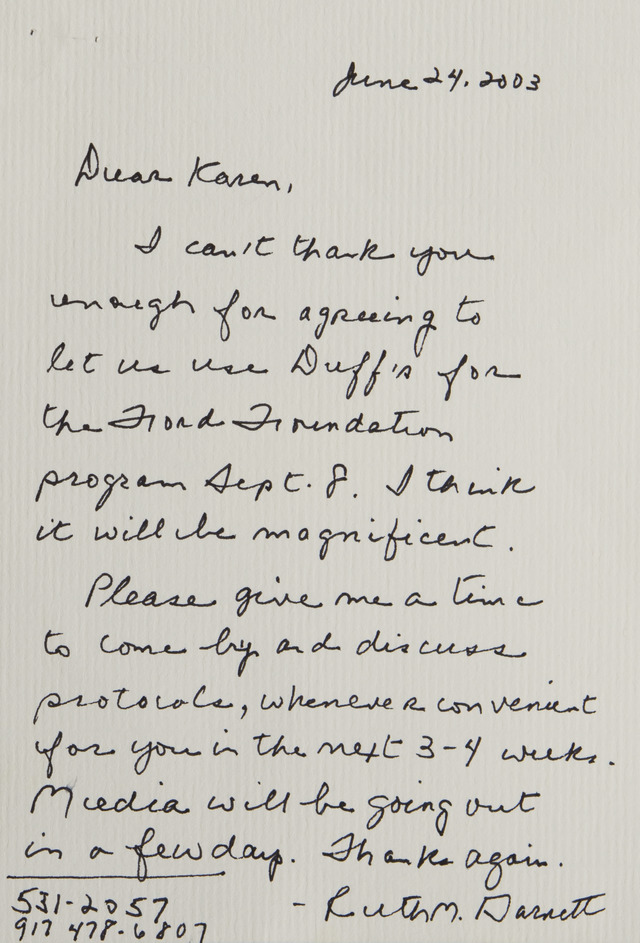 June 24, 2003
Dear Karen,
I can't thank you
enough for agreeing to
let us use Duff's for
the Ford Foundation
program Sept. 8. I think
it will be magnificent.
Please give me a time
to come by and discuss
protocols, whenever convenient
for you in the next 3-4 weeks.
Media will be going out
in a few days. Thanks again.
- Ruth M. Barnett
531-2057
917 478-6807